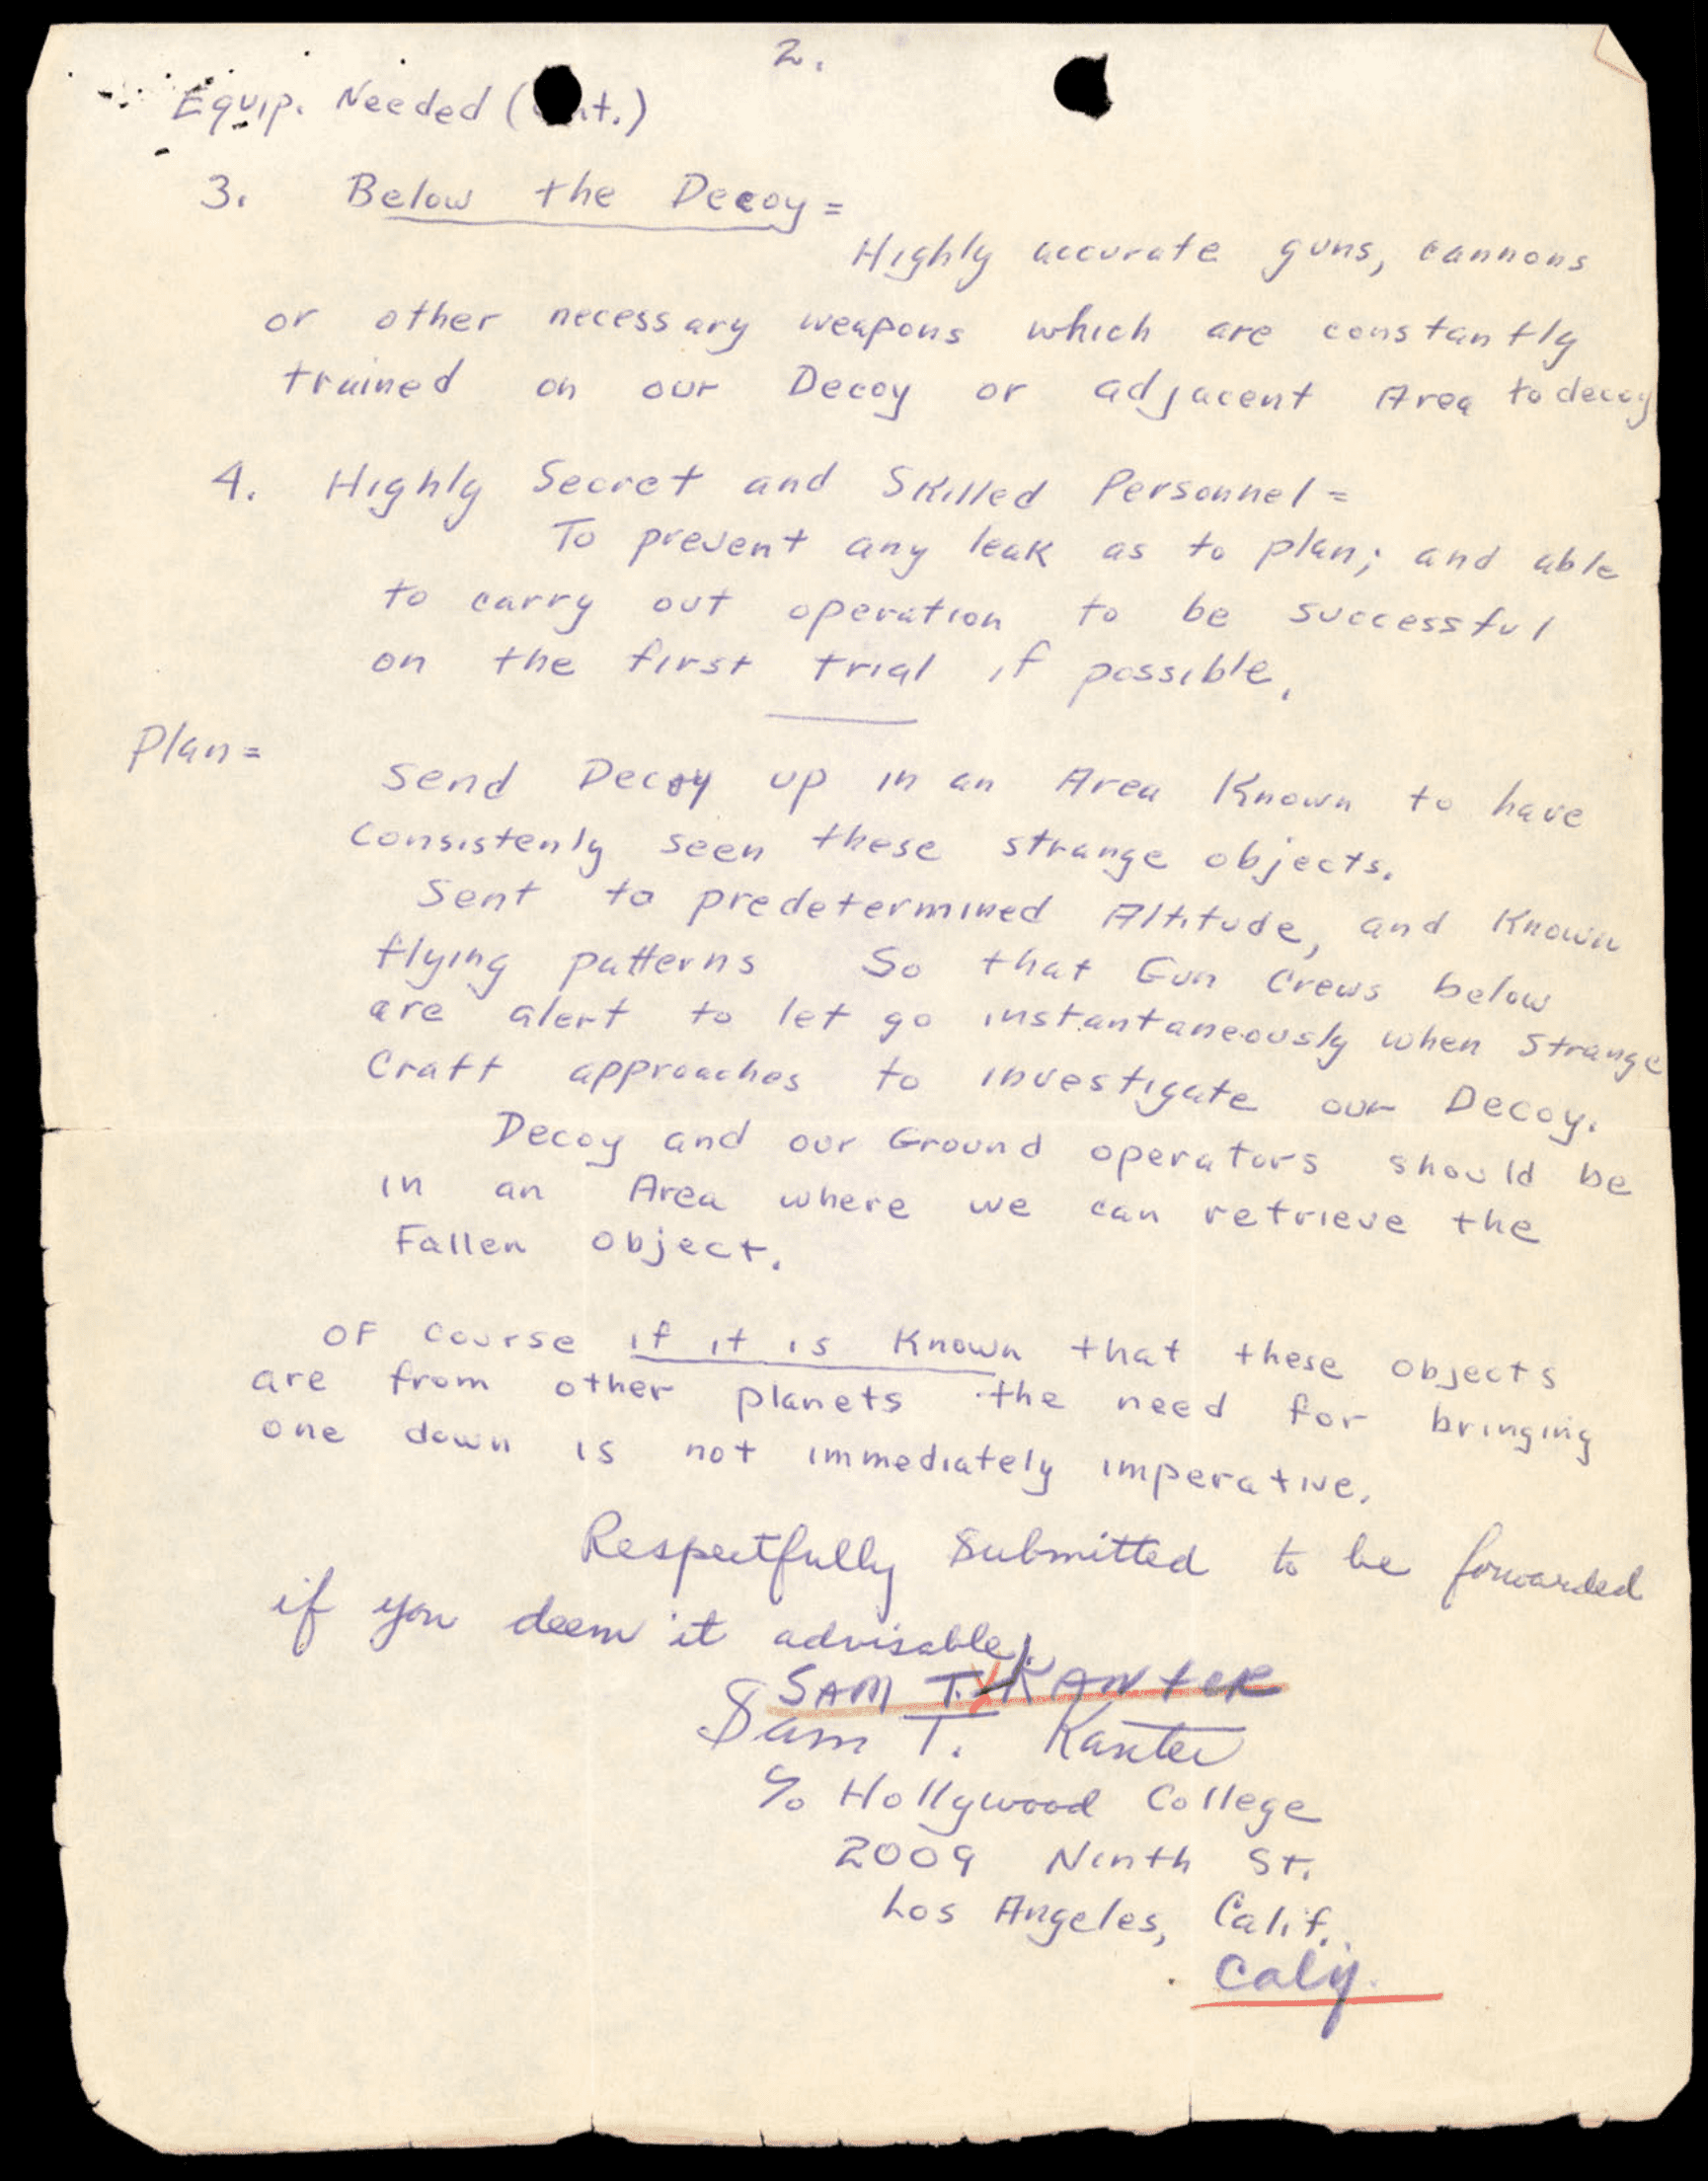 2.
Equip. Needed (  nt.)
3. Below the Decoy =
Highly accurate guns, cannons
or other necessary weapons which are constantly
trained on our Decoy or adjacent Area to decoy
4. Highly Secret and Skilled Personnel =
To prevent any leak as to plan; and able
to carry out operation to be successful
on the first trial if possible.
Plan =
Send Decoy up in an Area Known to have
consistenly seen these strange objects.
Sent to predetermined Altitude, and Known
flying patterns So that Gun Crews below
are alert to let go instantaneously when Strange
Craft approaches to investigate our Decoy.
Decoy and our Ground operators should be
in an Area where we can retrieve the
Fallen object.
OF course if it is Known that these objects
are from other planets the need for bringing
one down is not immediately imperative.
Respectfully Submitted to be forwarded
if you deem it advisable.
SAM T. KANTER
Sam T. Kanter
c/o Hollywood College
2009 Ninth St.
Los Angeles, Calif.
Calif.